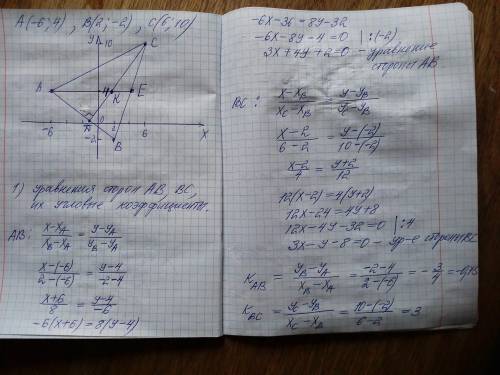 A(-6; 4) , B(2; -2) , C(6; 10)
y
10
C
A
4
K
E
-6
0
2
6
X
-2
B
1) Уравнения сторон AB, BC,
их угловые коэффициенты.
AB: (x-x_A)/(x_B-x_A) = (y-y_A)/(y_B-y_A)
(x-(-6))/(2-(-6)) = (y-4)/(-2-4)
(x+6)/8 = (y-4)/(-6)
-6(x+6)=8(y-4)
-6x-36=8y-32
-6x-8y-4=0 |:(-2)
3x+4y+2=0 - уравнение
стороны AB
BC: (x-x_B)/(x_C-x_B) = (y-y_B)/(y_C-y_B)
(x-2)/(6-2) = (y-(-2))/(10-(-2))
(x-2)/4 = (y+2)/12
12(x-2)=4(y+2)
12x-24=4y+8
12x-4y-32=0 |:4
3x-y-8=0 - ур-е стороны BC
K_AB = (y_B-y_A)/(x_B-x_A) = (-2-4)/(2-(-6)) = -3/4 = -0,75
K_BC = (y_C-y_B)/(x_C-x_B) = (10-(-2))/(6-2) = 3